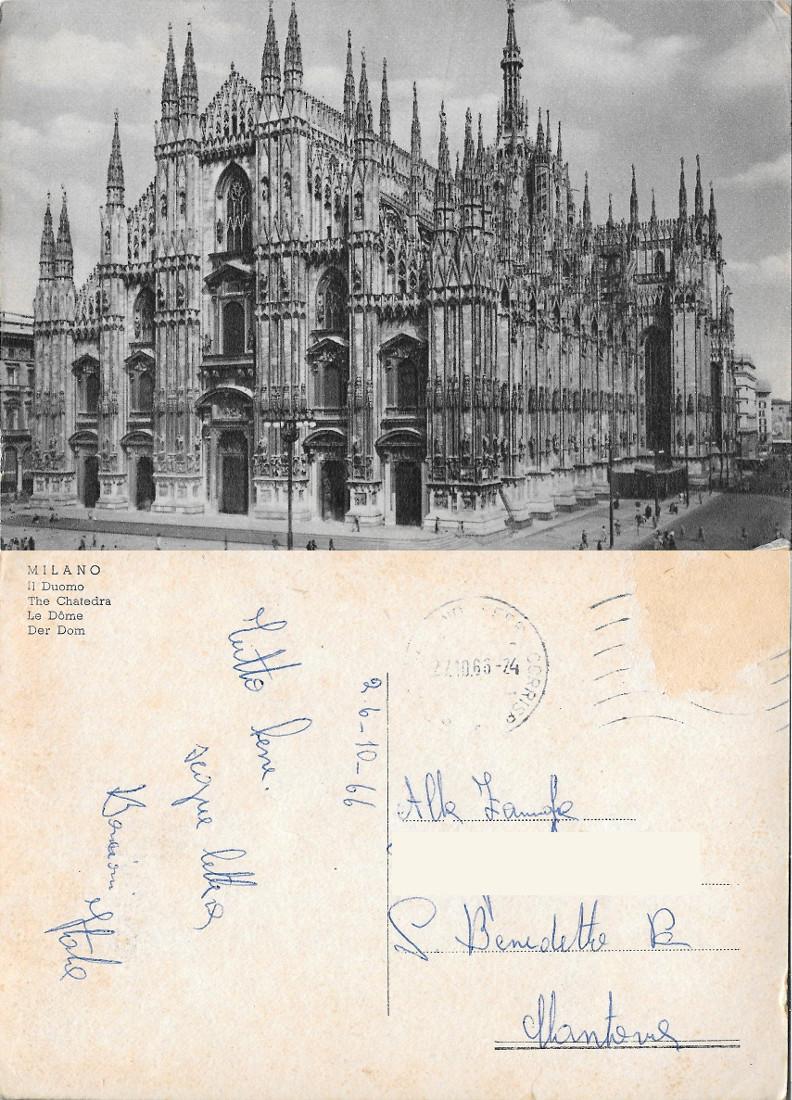 MILANO
Il Duomo
The Chatedra
Le Dôme
Der Dom
26-10-66
Tutto bene.
segue lettera
Bacioni
CORRISP
27.10.66-24
Alla
S. Benedetto Po
Mantova